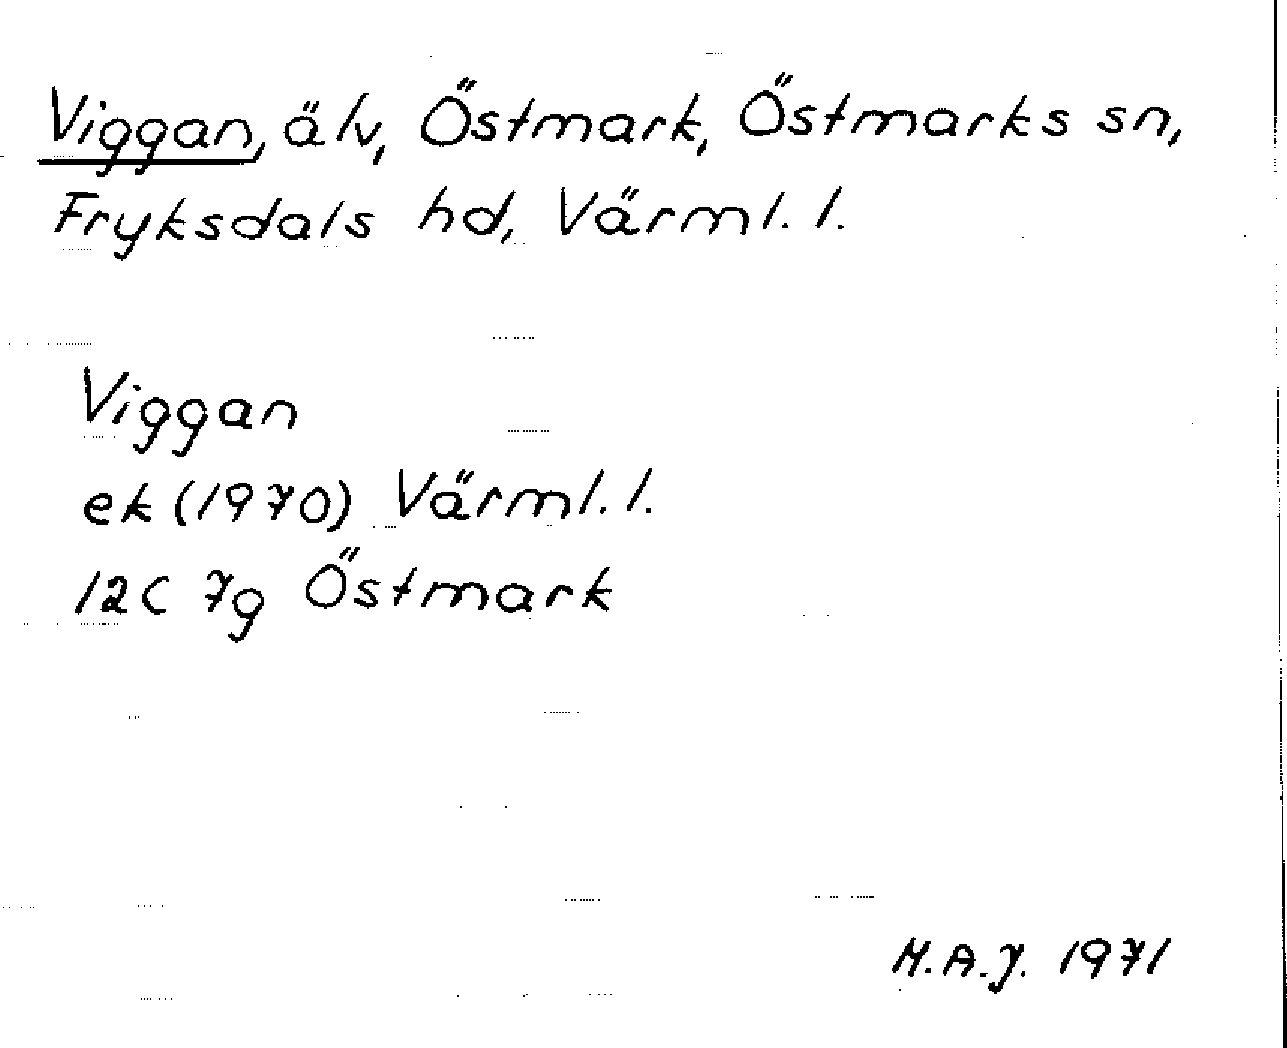 Viggan, älv, Östmark, Östmarks sn,
Fryksdals hd, Värml. l.
Viggan
ek (1970) Värml. l.
12C 7g Östmark
M.A.J. 1971